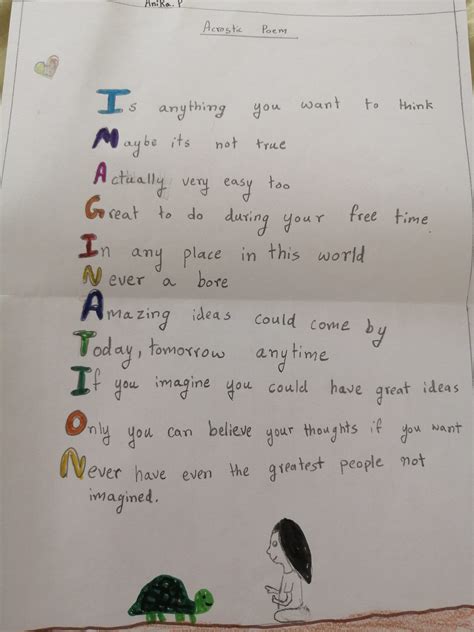 Anika. P
Acrostic Poem
Is anything you want to think
Maybe its not true
Actually very easy too
Great to do during your free time
In any place in this world
Never a bore
Amazing ideas could come by
Today, tomorrow anytime
If you imagine you could have great ideas
Only you can believe your thoughts if you want
Never have even the greatest people not
imagined.